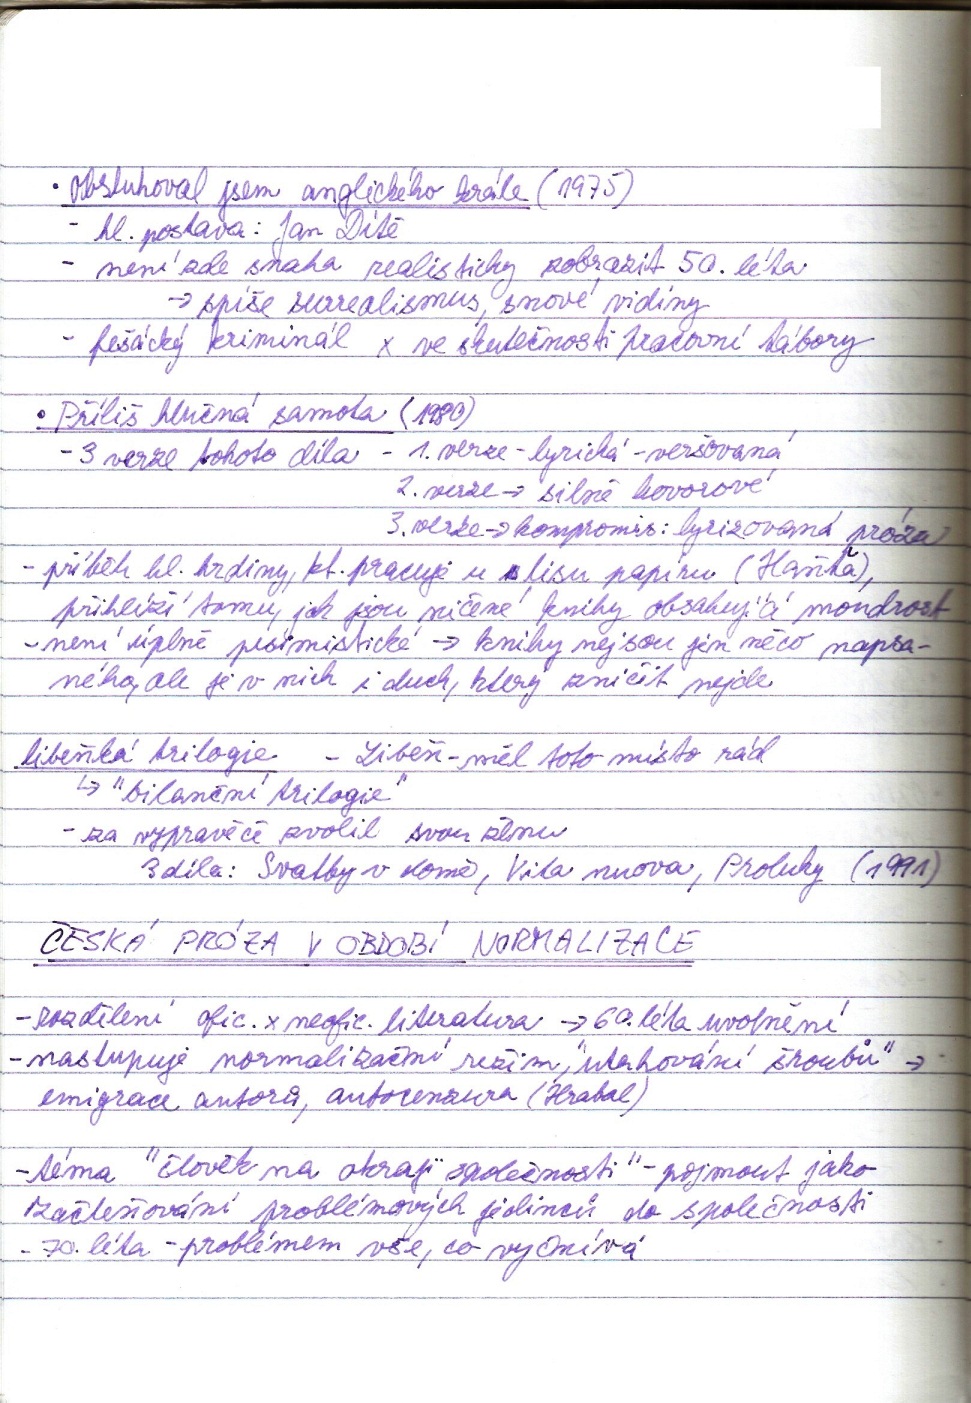 • Obsluhoval jsem anglického krále (1975)
- hl. postava: Jan Dítě
- není zde snaha realisticky zobrazit 50. léta
→ spíše surrealismus, snové vidiny
- fešácký kriminál x ve skutečnosti pracovní tábory
• Příliš hlučná samota (1980)
- 3 verze tohoto díla - 1. verze - lyrická - veršovaná
2. verze → silně hovorové
3. verze → kompromis: lyrizovaná próza
- příběh hl. hrdiny, kt. pracuje u lisu papíru (Haňťa),
přihlíží tomu, jak jsou ničené knihy obsahující moudrost
- není úplně pesimistické → knihy nejsou jen něco napsa-
ného, ale je v nich i duch, který zničit nejde
libeňká trilogie - Libeň - měl toto místo rád
↳ "bilanční trilogie"
- za vypravěče zvolil svou ženu
3 díla: Svatby v domě, Vita nuova, Proluky (1991)
ČESKÁ PRÓZA V OBDOBÍ NORMALIZACE
- rozdělení ofic. x neofic. literatura → 60. léta uvolnění
- nastupuje normalizační režim, "utahování šroubů" →
emigrace autorů, autocenzura (Hrabal)
- téma "člověk na okraji společnosti" - pojmout jako
začleňování problémových jedinců do společnosti
- 70. léta - problémem vše, co vyčnívá